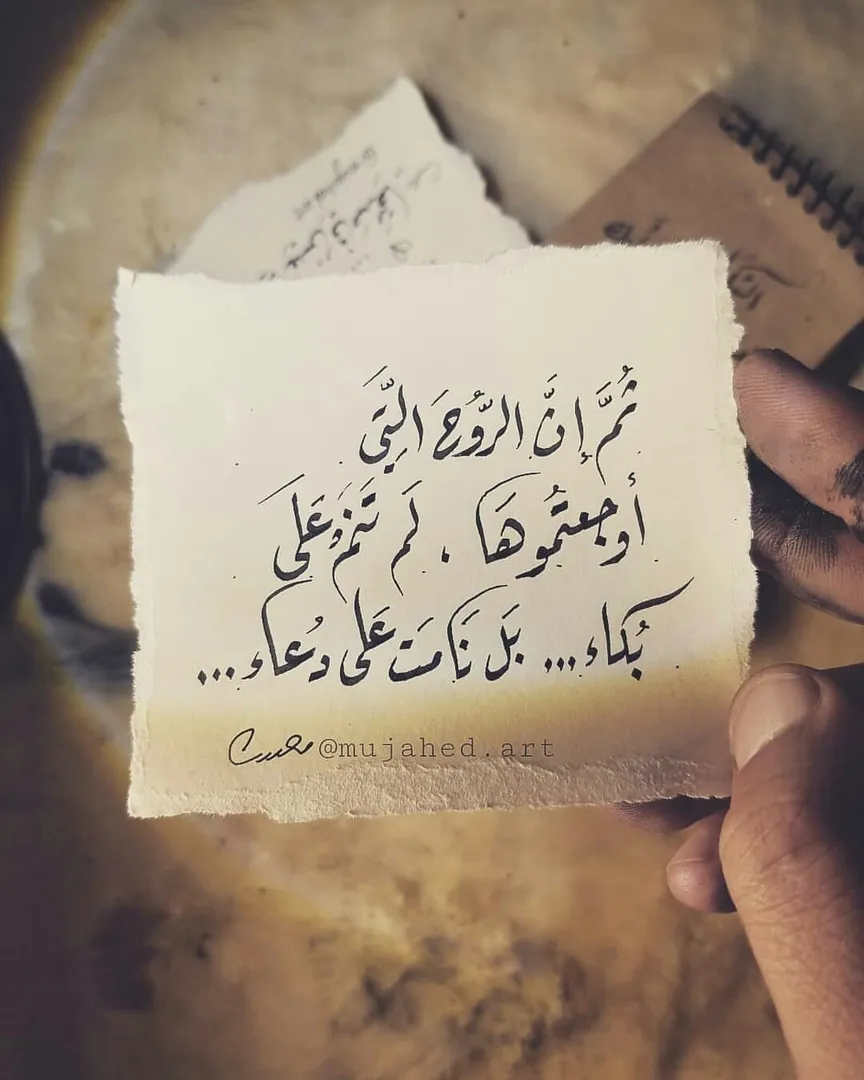 ثُمَّ إنَّ الرُّوحَ الَّتِي
أوجعتُموهَا . لَم تَنَمْ عَلَى
بُكاء... بَل نَامَت عَلى دُعاء...
@mujahed.art